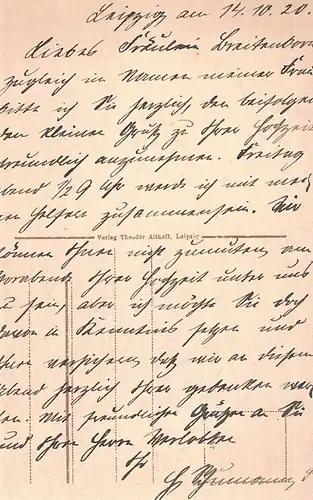 Leipzig am 14.10.20.
Liebes Fräulein Breitenborn
zugleich im Namen meiner Frau
bitte ich Sie herzlich, den beifolgen
den kleinen Gruß zu Ihrer Hochzeit
freundlich anzunehmen. Freitag
abend 1/2 9 Uhr werde ich mit mei
nen Helfern zusammensein. Wir
Verlag Theodor Althoff, Leipzig
können Ihnen nicht zumuten, am
Vorabend Ihrer Hochzeit unter uns
zu sein, aber ich möchte Sie doch
davon in Kenntnis setzen und
Ihnen versichern, daß wir an diesem
Abend herzlich Ihrer gedenken wer
den. Mit freundlichen Grüßen an Sie
und Ihren Herrn Verlobten
Ihr
Schumann